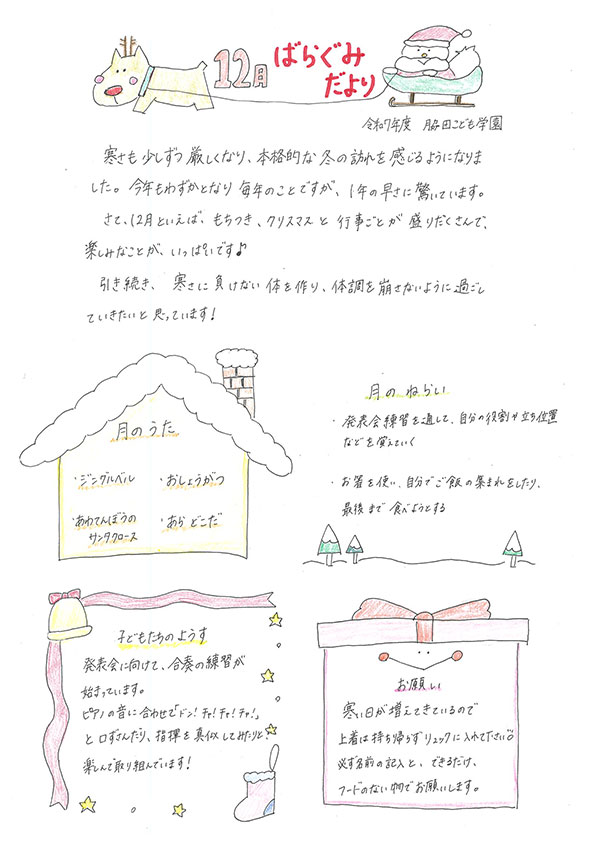 12月 ばらぐみ
だより
令和7年度 脇田こども学園
寒さも少しずつ厳しくなり、本格的な冬の訪れを感じるようになりま
した。今年もわずかとなり毎年のことですが、1年の早さに驚いています。
さて、12月といえば、もちつき、クリスマスと行事ごとが盛りだくさんで、
楽しみなことが、いっぱいです♪
引き続き、寒さに負けない体を作り、体調を崩さないように過ごし
ていきたいと思っています!
月のうた
・ジングルベル
・おしょうがつ
・あわてんぼうの
サンタクロース
・あら どこだ
月のねらい
・発表会練習を通して、自分の役割や立ち位置
などを覚えていく
・お箸を使い、自分でご飯の集まれをしたり、
最後まで食べようとする
子どもたちのようす
発表会に向けて、合奏の練習が
始まっています。
ピアノの音に合わせて「ドン!チャ!チャ!チャ!」
と口ずさんだり、指揮を真似してみたりと
楽しんで取り組んでいます!
お願い
寒い日が増えてきているので
上着は持ち帰らずリュックに入れて下さい。
必ず名前の記入と、できるだけ、
フードのない物でお願いします。